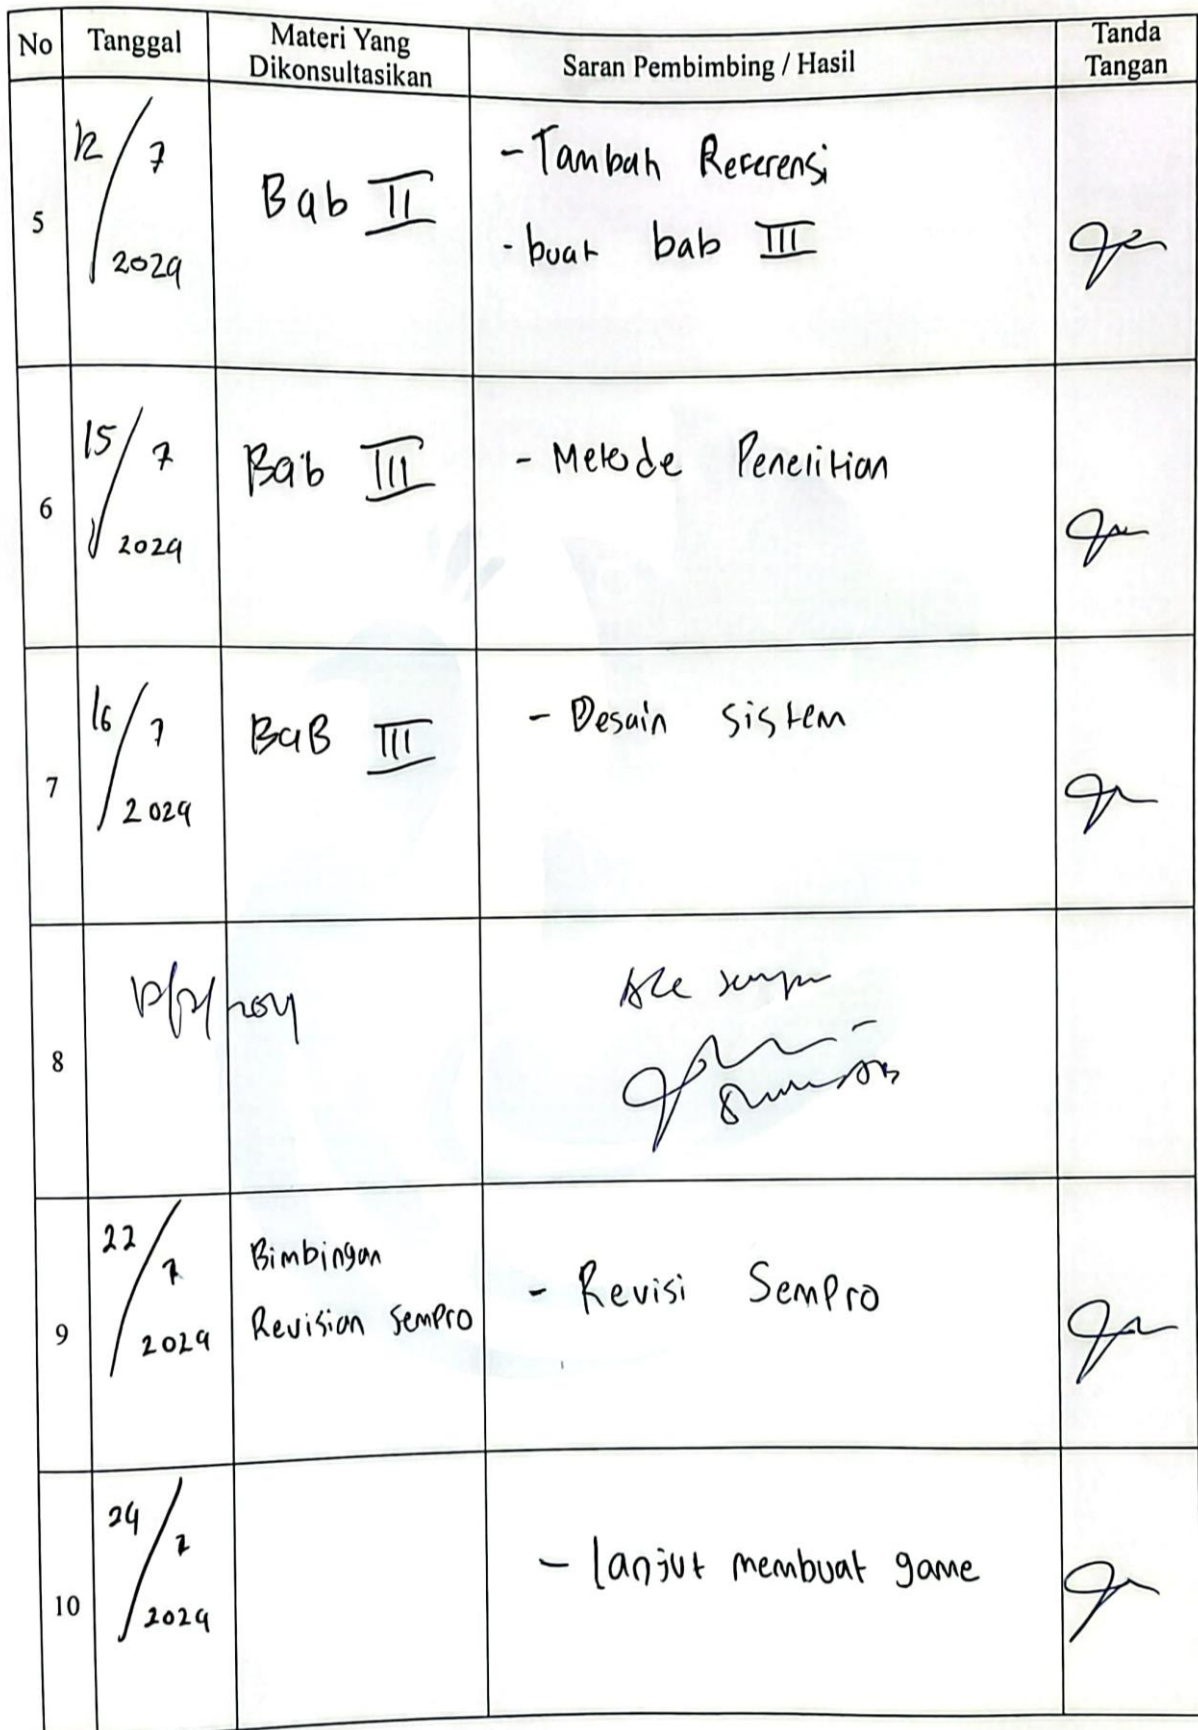 No
Tanggal
Materi Yang
Dikonsultasikan
Saran Pembimbing / Hasil
Tanda
Tangan
5
12/7
2024
Bab II
- Tambah Referensi
- buat bab III
6
15/7
2024
Bab III
- Metode Penelitian
7
16/7
2024
BaB III
- Desain sistem
8
9
22/7
2024
Bimbingan
Revision SemPro
- Revisi SemPro
10
24/7
2024
- lanjut membuat game